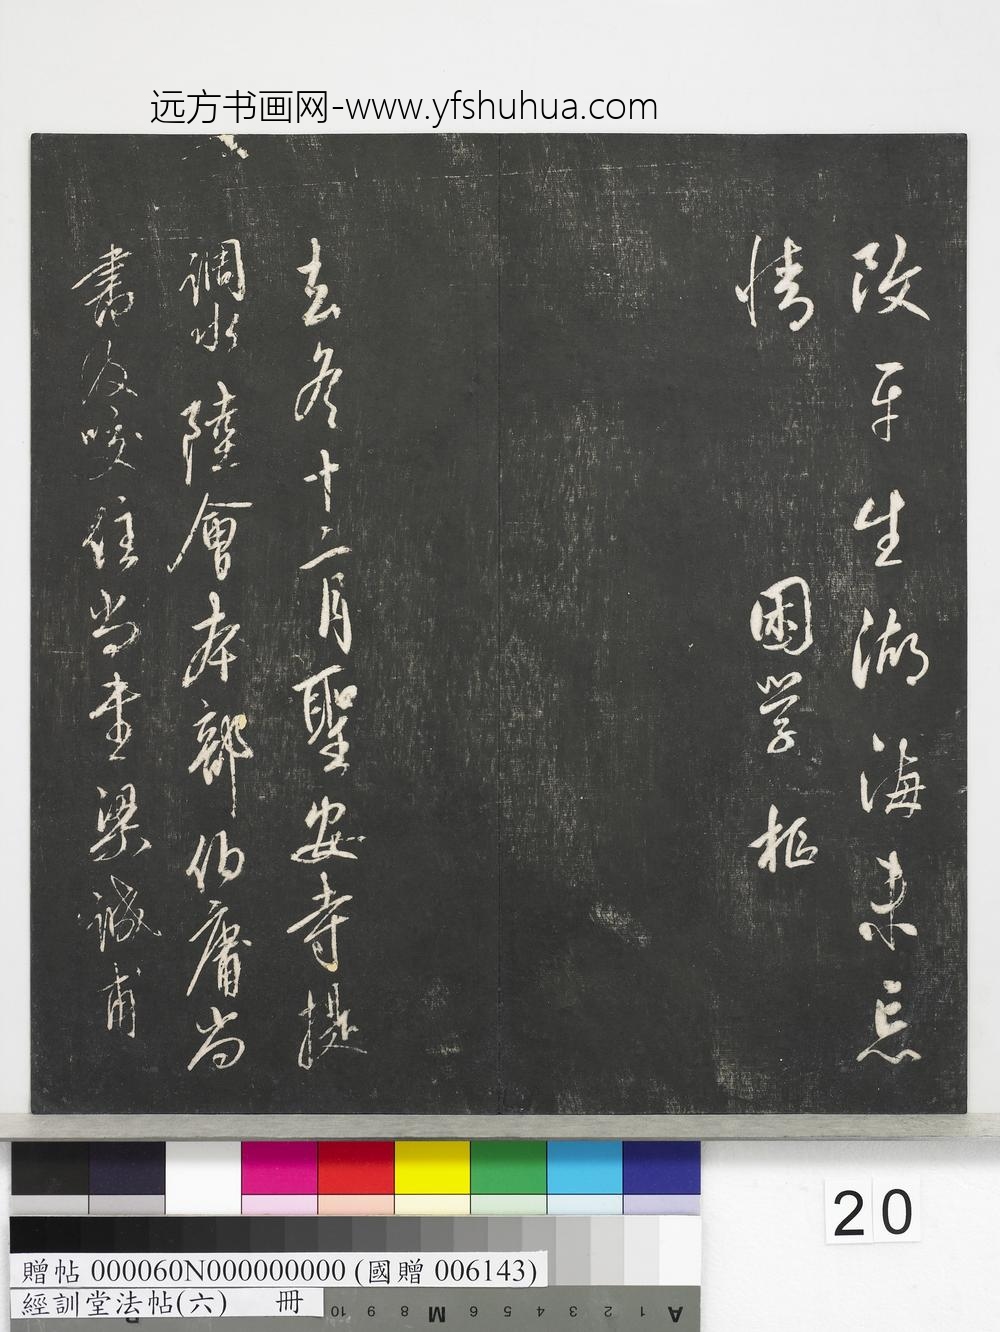 远方书画网-www.yfshuhua.com
改平生湖海未忘
情 困學 樞
去冬十二月聖安寺提
調水陸會本部伯庸尚
書及暾住尚書梁誠甫
20
贈帖 000060N000000000 (國贈 006143)
經訓堂法帖(六) 冊
10 9 8 M 6 5 4 3 2 1 A